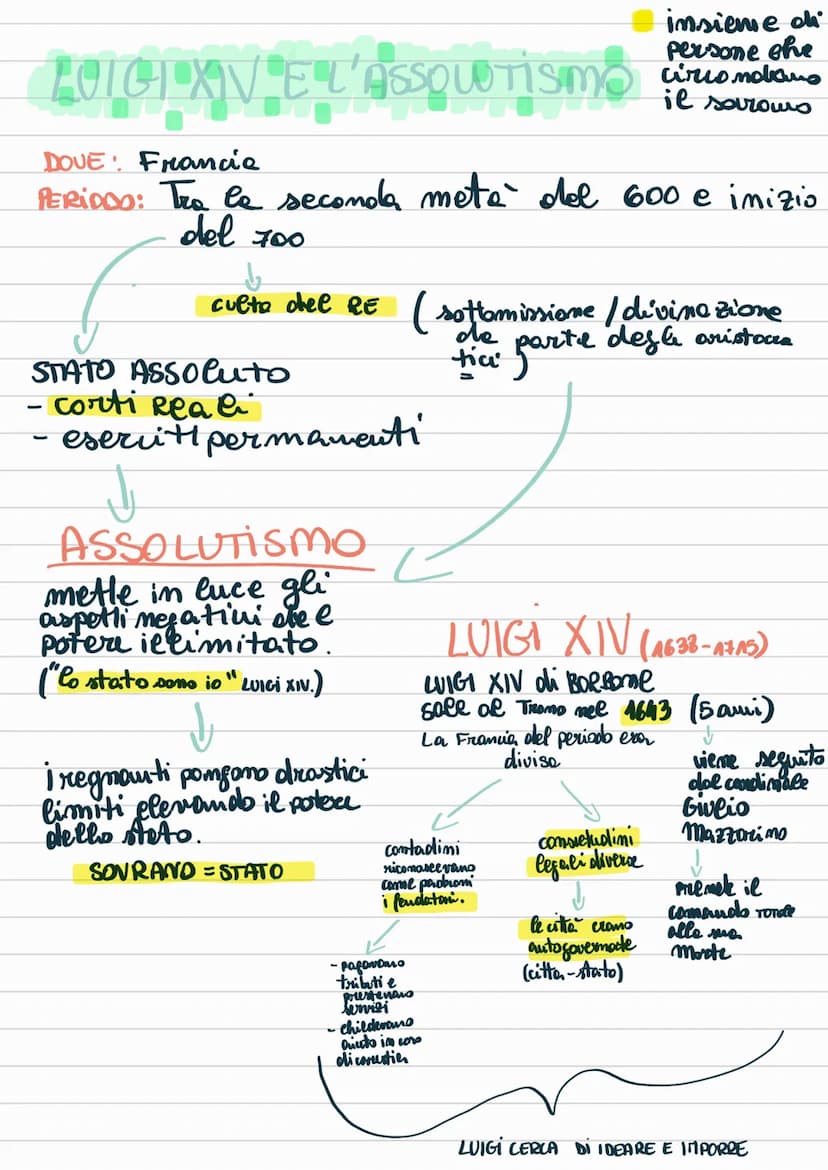 insieme di
persone che
circondano
il sovrano
LUIGI XIV E L'ASSOLUTISMO
DOVE: Francia
PERIODO: Tra la seconda metà del 600 e inizio
del 700
culto del RE (sottomissione / divinazione
da parte degli aristocra
tici)
STATO ASSOLUTO
- corti reali
- eserciti permanenti
ASSOLUTISMO
mette in luce gli
aspetti negativi del
potere illimitato.
("lo stato sono io" LUIGI XIV.)
i regnanti pongono drastici
limiti elevando il potere
dello stato.
SOVRANO = STATO
LUIGI XIV (1638-1715)
LUIGI XIV di BORBONE
sale al Trono nel 1643 (5 anni)
La Francia del periodo era
divisa
viene seguito
dal cardinale
Giulio
Mazzarino
prende il
comando totale
alla sua
morte
contadini
riconoscevano
come padroni
i feudatari.
- pagavano
tributi e
prestavano
servizi
- chiedevano
aiuto in caso
di carestia
consuetudini
legali diverse
le città erano
autogovernate
(città-stato)
LUIGI CERCA DI IDEARE E IMPORRE